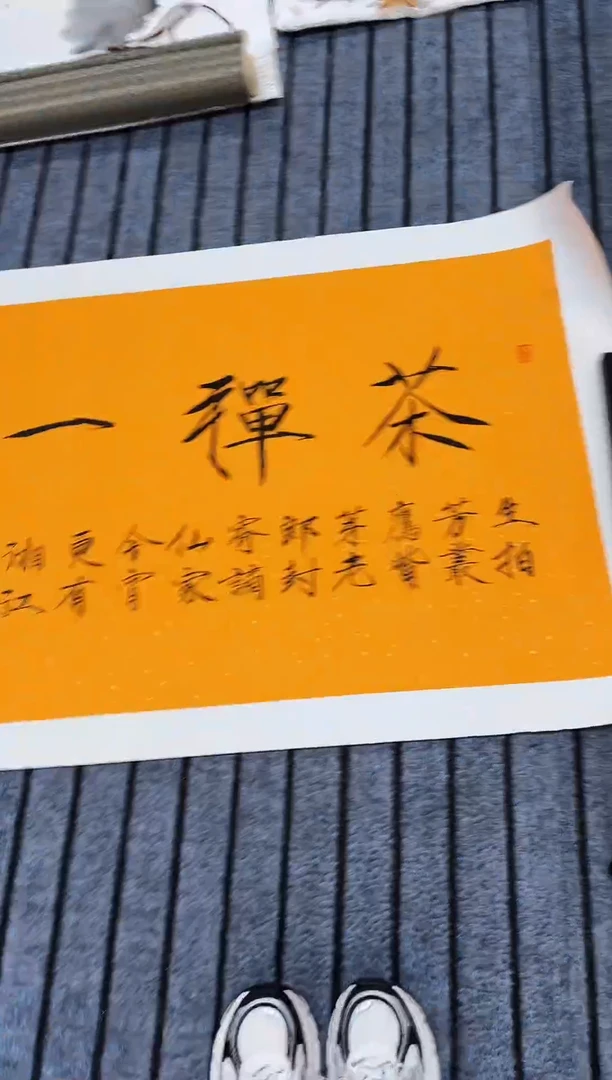 茶禪一
生拍
芳叢
鷹觜
芽老
郎封
寄謫
仙家
今宵
更有
湘江